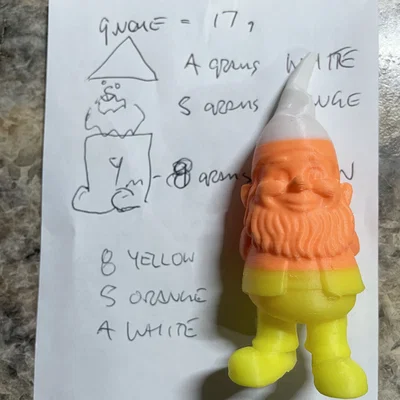 gnome = 17,
4 grams WHITE
5 grams NGE
8 grams N
8 YELLOW
5 ORANGE
4 WHITE